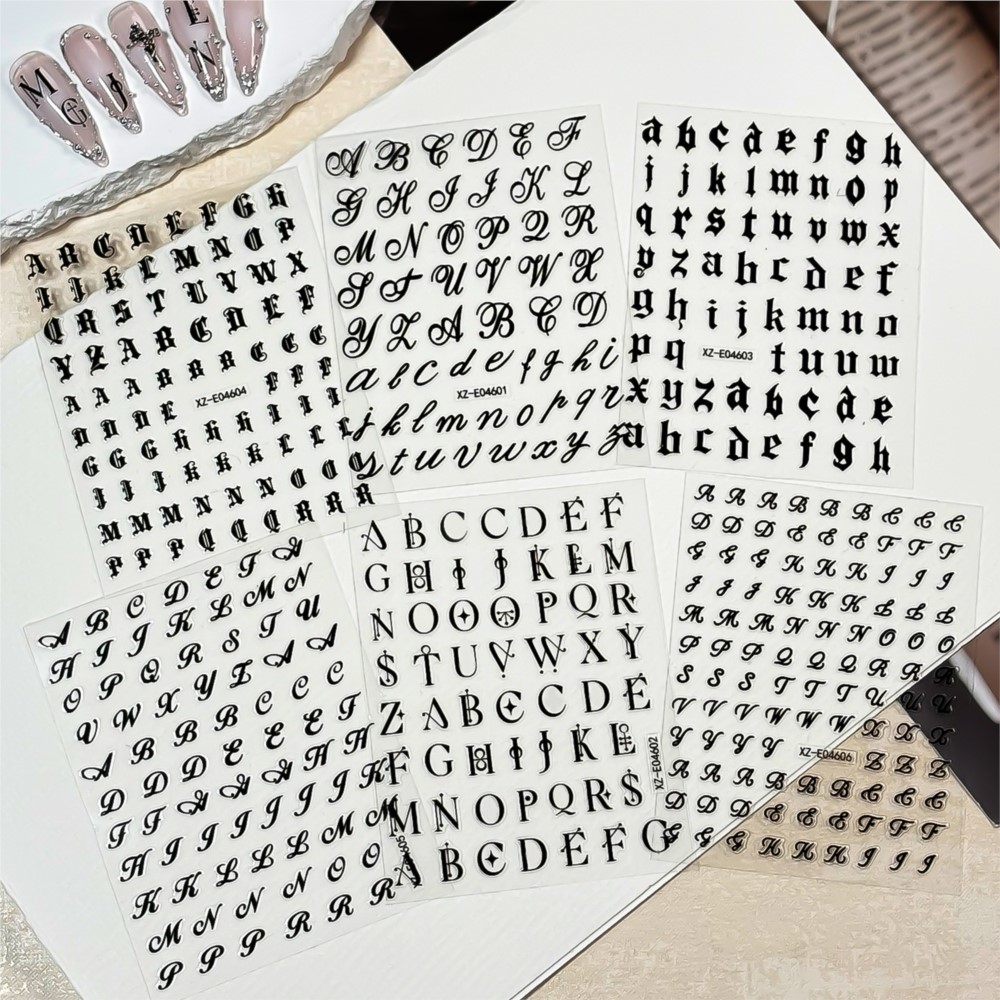 M G J N E
A B C D E F G H
I J K L M N O P
Q R S T U V W X
Y Z A B C D E F
A A A B B B C C C
D D D E F F F
G G G H H H I I I
J J J K K K L L L
M M M N N N O O O
P P P Q Q Q R R R
XZ-E04604
A B C D E F
G H I J K L
M N O P Q R
S T U V W X
Y Z A B C D
a b c d e f g h i
j k l m n o p q r
s t u v w x y z
XZ-E04601
a b c d e f g h
i j k l m n o p
q r s t u v w x
y z a b c d e f
g h i j k m n o
p q t u v w
x y z a b c d e
a b c d e f g h
XZ-E04603
A B C D E F A
H I J K L M N
O P Q R S T U
V W X Y Z A A
A B B B C C C
D D D E E E F
F F A A H H
H I I I J J K
K K L L L M M
M N N N O O
P P P R R R
A B C C D E F
G H I J K L M
N O O O P Q R
S T U V W X Y
Z A B C C D E
F G H I J K L
M N O P Q R S
A B C D E F G
XZ-E04602
A A A B B B C C C
D D D E E E F F F
G G G H H H I I I
J J J K K K L L L
M M M N N N O O O
P P P Q Q Q R R R
S S S T T T U U U
V V V W W W X X X
Y Y Y Y Z Z Z
XZ-E04606
A A A B B B C C C
D D D E E E F F F
G G G H H H I I I